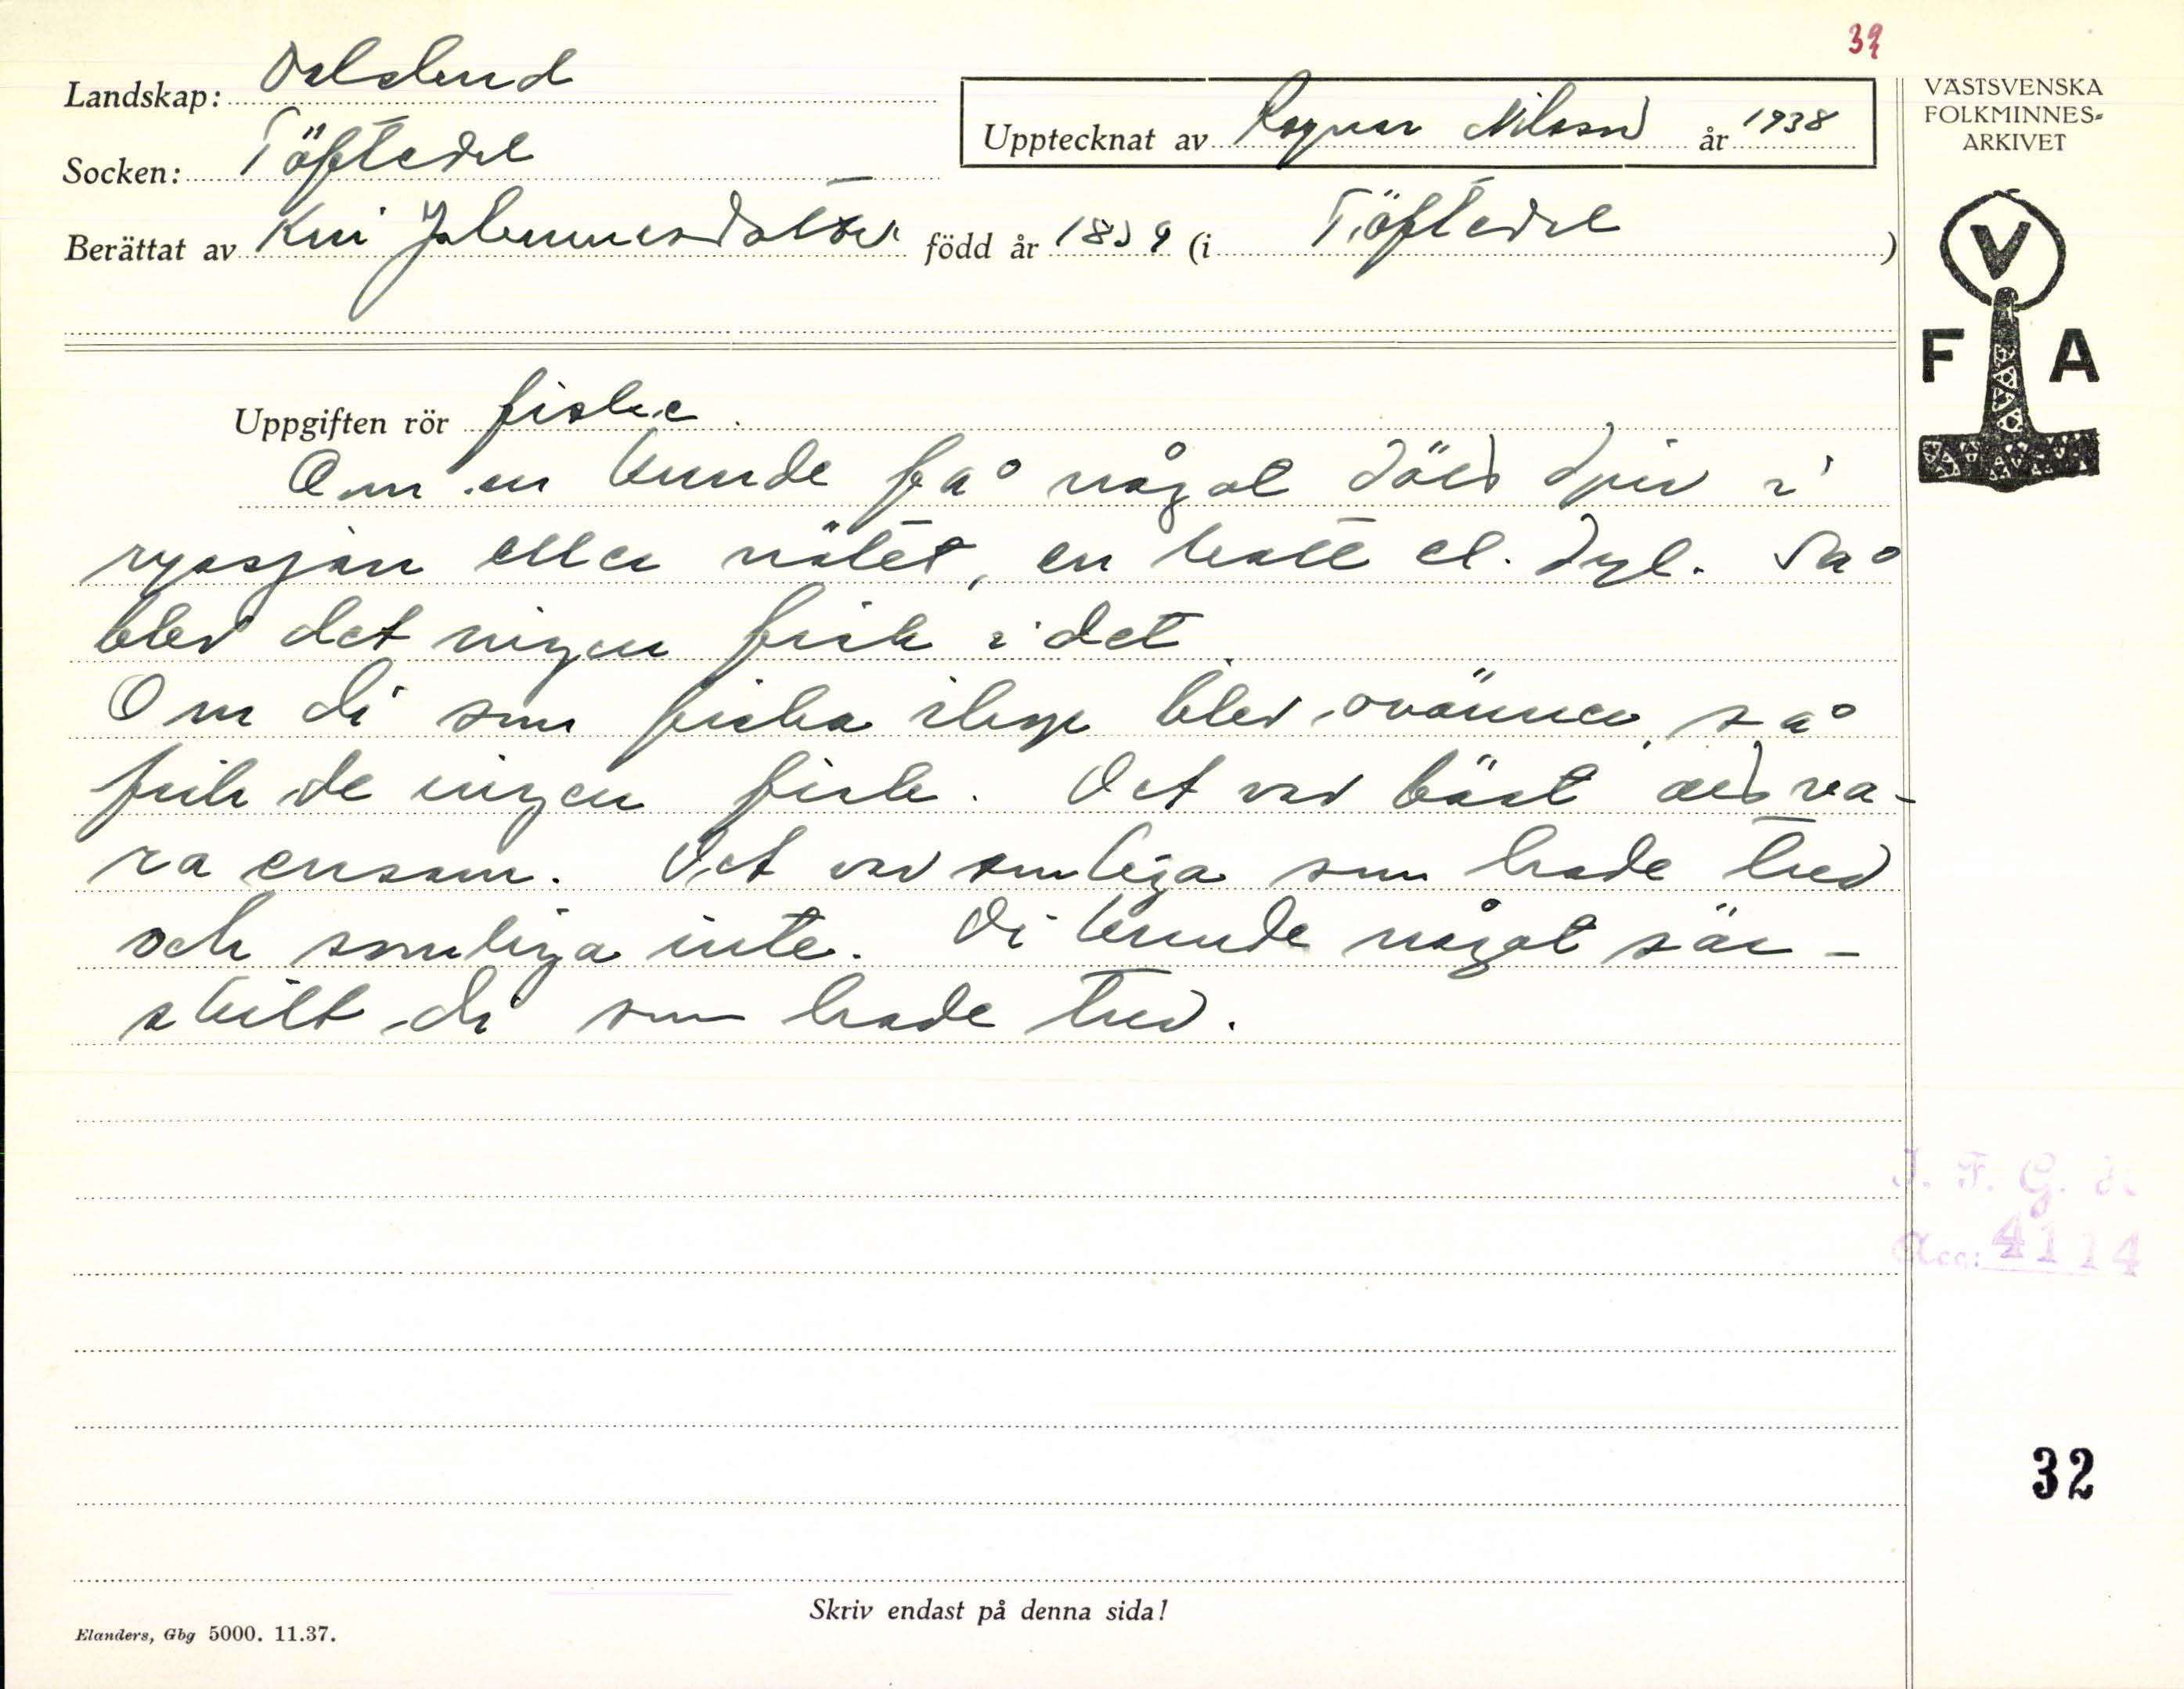 39
Landskap: Dalsland
Upptecknat av Ragnar Nilsson år 1938
VÄSTSVENSKA
FOLKMINNES-
ARKIVET
Socken: Töftedal
Berättat av Kari Johannesdotter född år 1859 (i Töftedal)
V
F A
Uppgiften rör fiske.
Om en kunde få något dött djur i
ryssjan eller nätet, en katt el. dyl. Så
blev det ingen fisk i det.
Om di som fiska ihop blev ovänner, så
fick de ingen fisk. Det var bäst att va-
ra ensam. Det var somliga som hade tur
och somliga inte. Di kunde något sär-
skilt di som hade tur.
I. F. G. H.
Acc: 4114
32
Skriv endast på denna sida!
Elanders, Gbg 5000. 11.37.